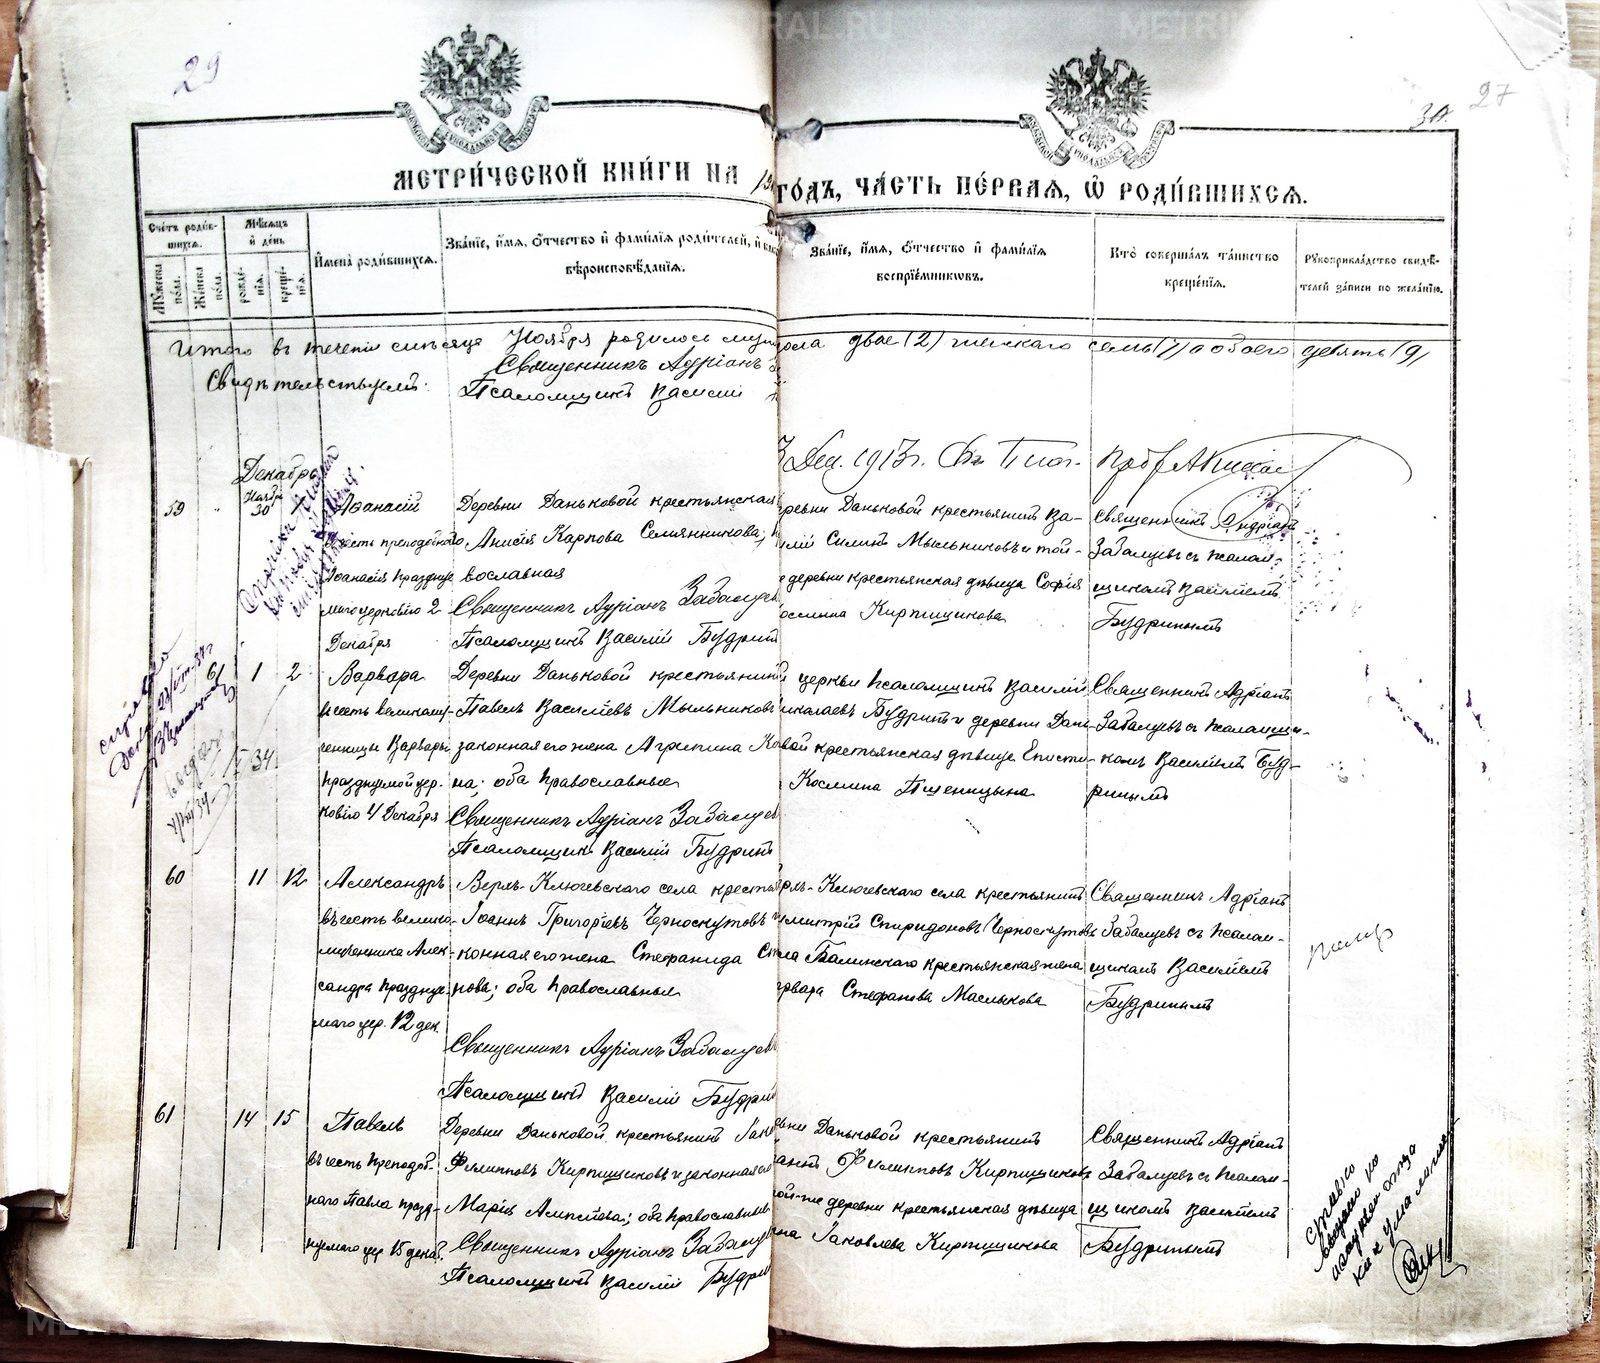 29
27
30.
МЕТРИ́ЧЕСКОЙ КНИ́ГИ НА 19
ГО́ДЪ, ЧА́СТЬ ПЕ́РВАѦ, Ѡ҆ РОДИ́ВШИХСѦ.
Сче́тъ роди́в-
шихсѧ.
Му́жеска по́ла.
Же́нска по́ла.
Мѣ́сѧцъ
и҆ де́нь
рожде́-
нїѧ.
креще́-
нїѧ.
И҆мена̀ роди́вшихсѧ.
Зва́нїе, и҆́мѧ, ѻ҆́тчество и҆ фами́лїѧ роди́телей, и҆
вѣроисповѣ́данїѧ.
Зва́нїе, и҆́мѧ, ѻ҆́тчество и҆ фами́лїѧ
воспрїе́мникѡвъ.
Кто̀ соверша́лъ та́инство
креще́нїѧ.
Рꙋкоприкла́дство свидѣ́-
телей за́писи по жела́нїю.
Итого въ теченіи мѣсяца Ноября родилось муж
пола двое (2) женскаго семь (7) а обоего девять (9)
Священникъ Адріанъ
Свидѣтельствуемъ:
Псаломщикъ Василій
Дек. 1913 г.
Декабрь
59
Ноября
30
Аѳанасій
въ честь преподобнаго
Аѳанасія празднуе
маго церковію 2
Декабря
Деревни Даньковой крестьянская
Анисія Карпова Семянникова;
вославная
Священникъ Адріанъ Забалуев
Псаломщикъ Василій Будрин
ревни Даньковой крестьянинъ Ва-
илій Силинъ Мыльниковъ и той-
деревни крестьянская дѣвица Софія
Кирпищикова
Священникъ Адріанъ
Забалуевъ съ псалом-
щикомъ Василіемъ
Будринымъ
61
1
2
Варвара
въ честь великому-
ченицы Варвары
празднуемой цер-
ковію 4 Декабря
Деревни Даньковой крестьянинъ
Павелъ Василіевъ Мыльниковъ
законная его жена Агрипина
на; оба православные
Священникъ Адріанъ Забалуев
Псаломщикъ Василій Будринъ
церкви псаломщикъ Василій
иколаевъ Будринъ и деревни Дань-
ковой крестьянская дѣвица Еписти-
Космина Пшеницына
Священникъ Адріанъ
Забалуевъ съ псаломщи-
комъ Василіемъ Буд-
ринымъ
60
11
12
Александръ
въ честь велико-
мученика Алек-
сандра празднуе-
маго цер. 12 дек.
Верхъ-Ключевскаго села кресть
Іоаннъ Григоріевъ Черноскутовъ
конная его жена Стефанида
нова; оба православные
Священникъ Адріанъ Забалуев
Псаломщикъ Василій Будрин
рхъ-Ключевскаго села крестьянинъ
имитрій Спиридоновъ Черноскутовъ
ла Балинскаго крестьянская жена
рвара Стефанова Маслыкова
Священникъ Адріанъ
Забалуевъ съ псалом-
щикомъ Василіемъ
Будринымъ
61
14
15
Павелъ
въ честь преподоб-
наго Павла празд-
нуемаго цер 15 декаб.
Деревни Даньковой крестьянинъ
Филипповъ Кирпищиковъ и законная
Марія; оба православные
Священникъ Адріанъ Забалу
Псаломщикъ Василій Будри
вни Даньковой крестьянинъ
Филипповъ Кирпищиковъ
той-же деревни крестьянская дѣвица
на Іаковлева Кирпищикова
Священникъ Адріанъ
Забалуевъ съ псалом-
щикомъ Василіемъ
Будринымъ